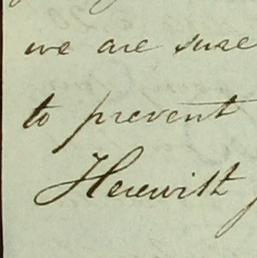 we are sure
to prevent
Herewith